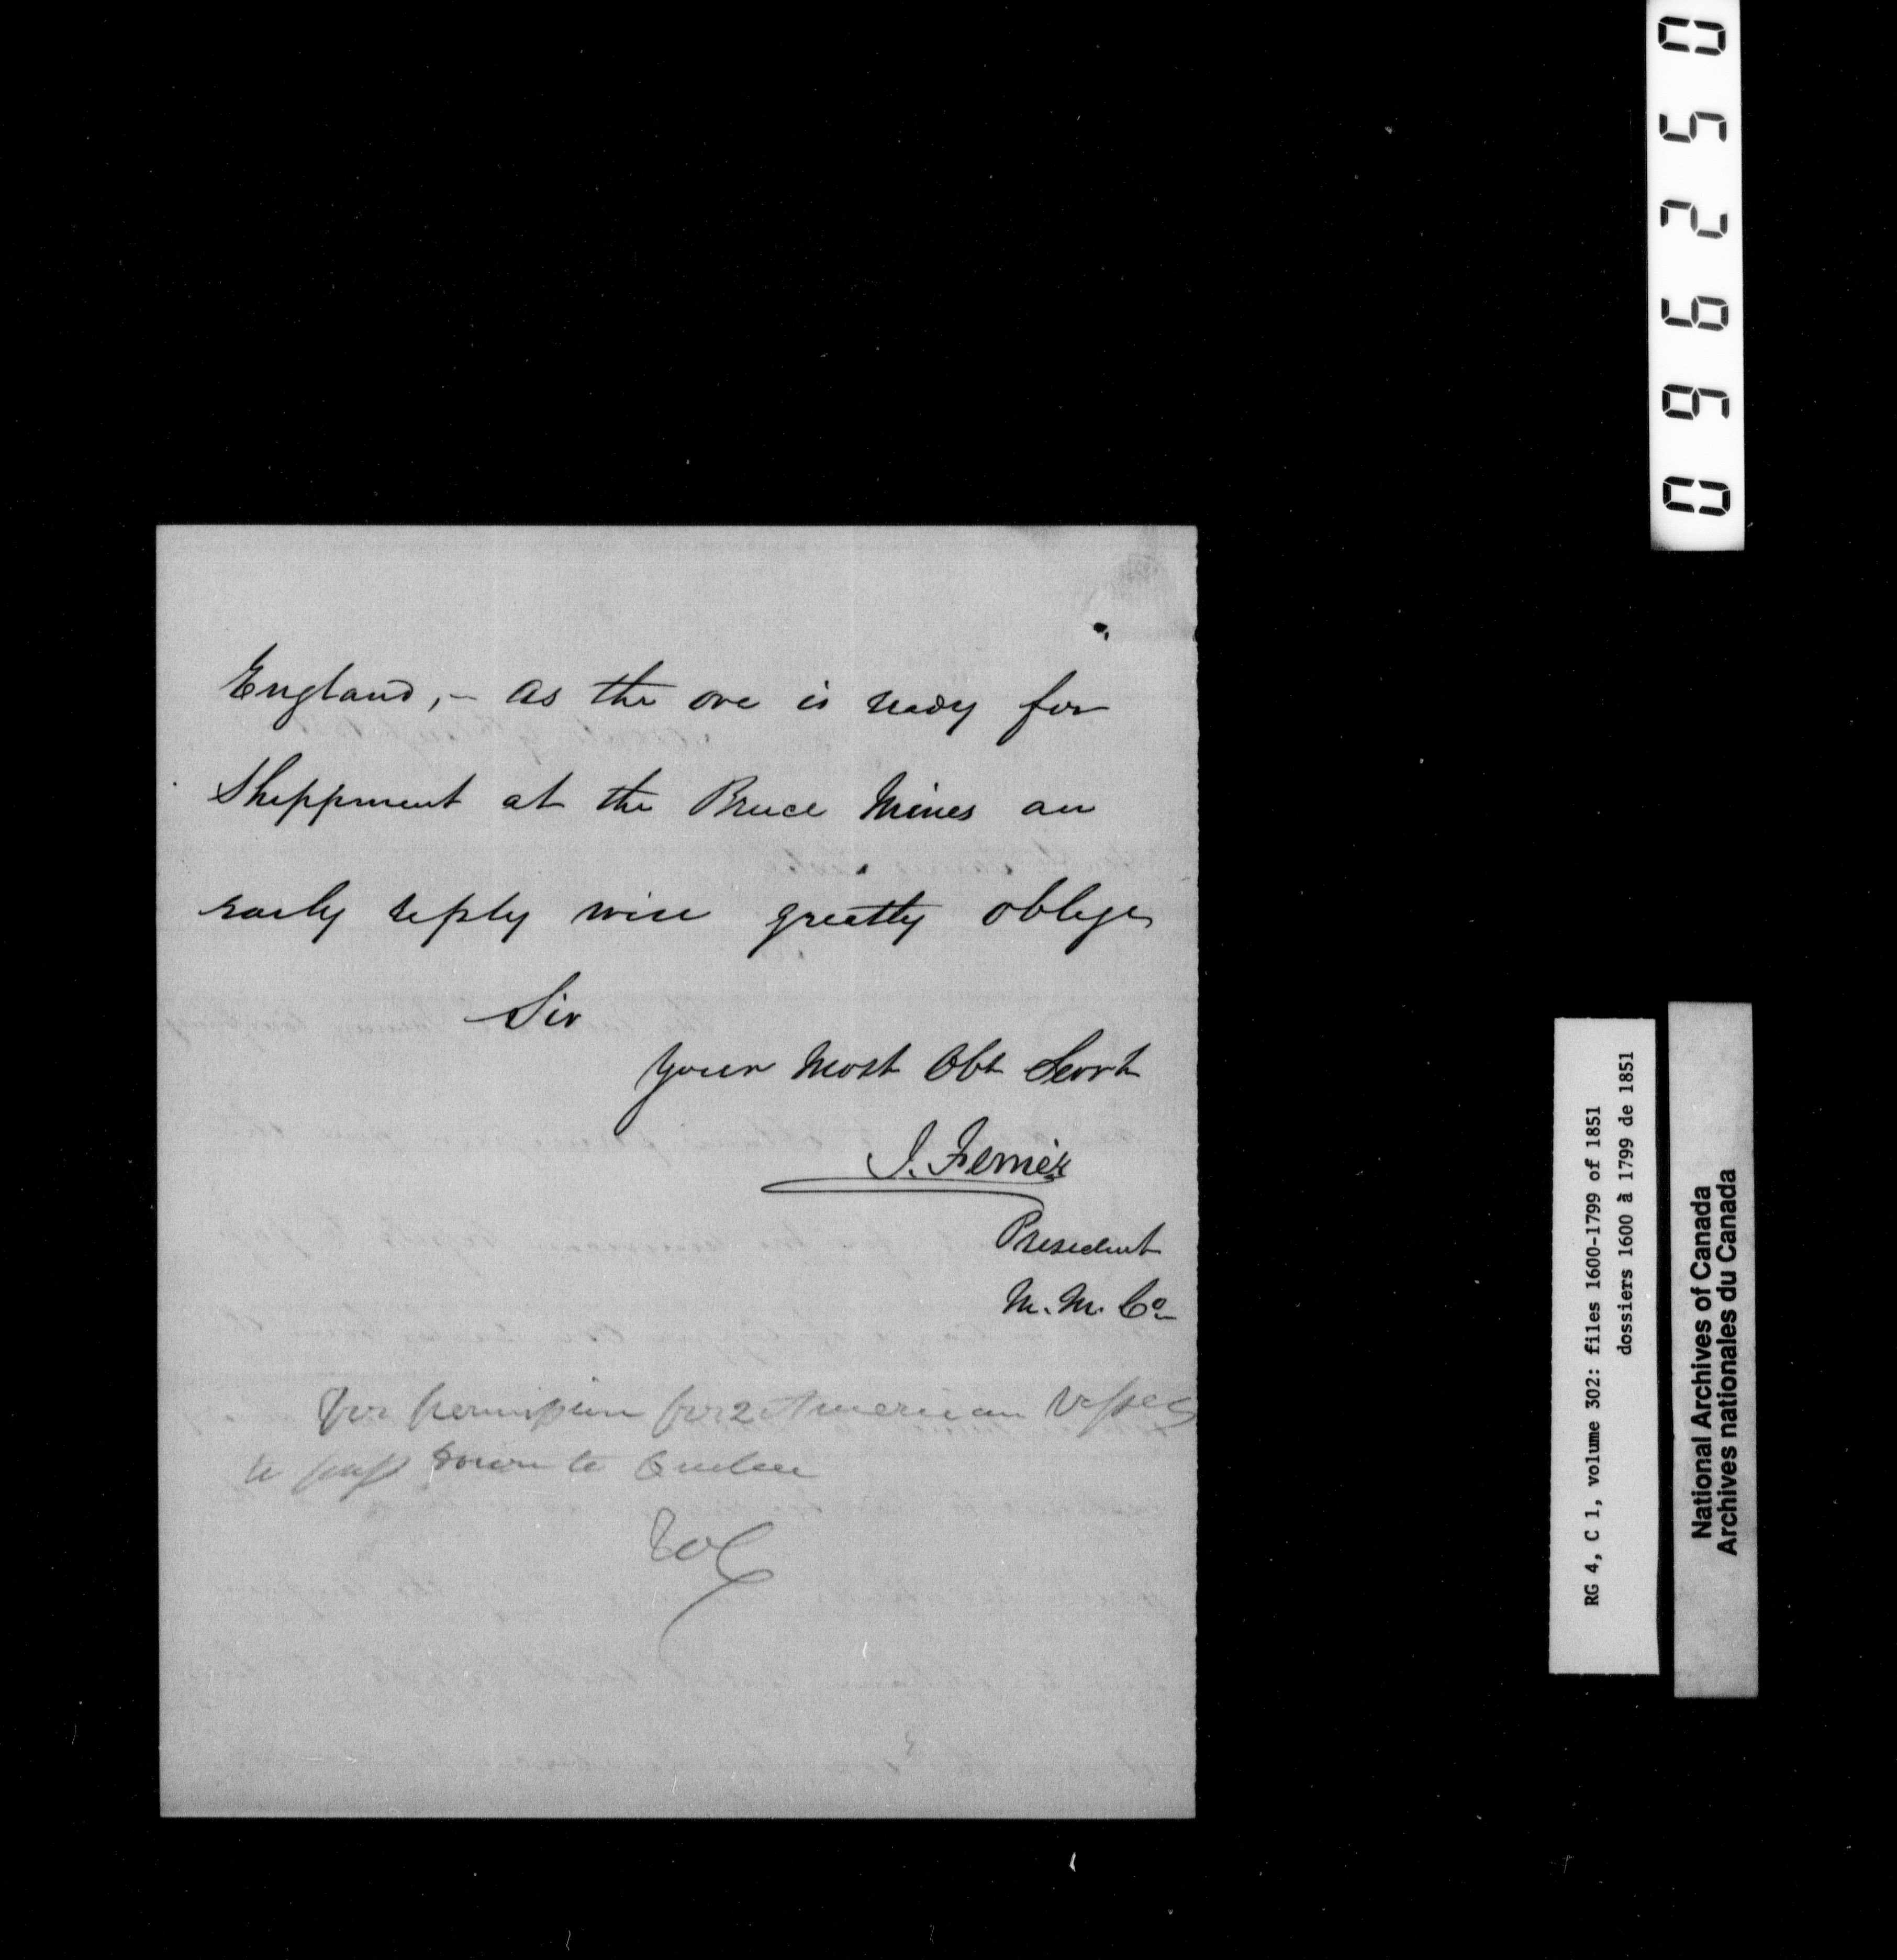 England, – as the ore is ready for
Sheppment at the Bruce Mines an
early reply will greatly oblige
Sir
Your Most Obt Servt
J. Ferrier
President
M. M. Co
For permission for 2 American Vessels
to pass down to Quebec
096250
RG 4, C 1, volume 302: files 1600-1799 of 1851
dossiers 1600 à 1799 de 1851
National Archives of Canada
Archives nationales du Canada